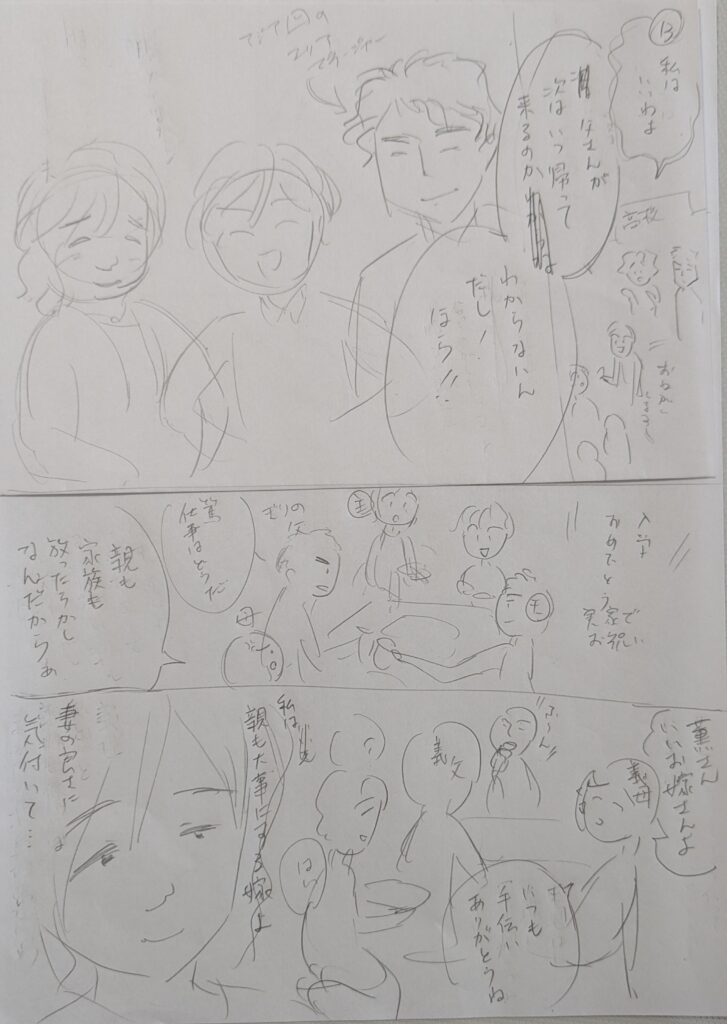 13
私は
いいわよ
高校
おねがい
しまーす
父さんが
次はいつ帰って
来るのか
わからないん
だし!
ほら!!
入学
おめでとう
実家で
お祝い
モリの
父
篤
仕事はどうだ
母
親も
家族も
放ったらかし
なんだからぁ
薫さん
いいお嫁さんよ
義母
ふーん
義父
いつも
手伝い
ありがとうね
はい
私は
親も大事にする嫁よ
妻の良さに
気付いて…